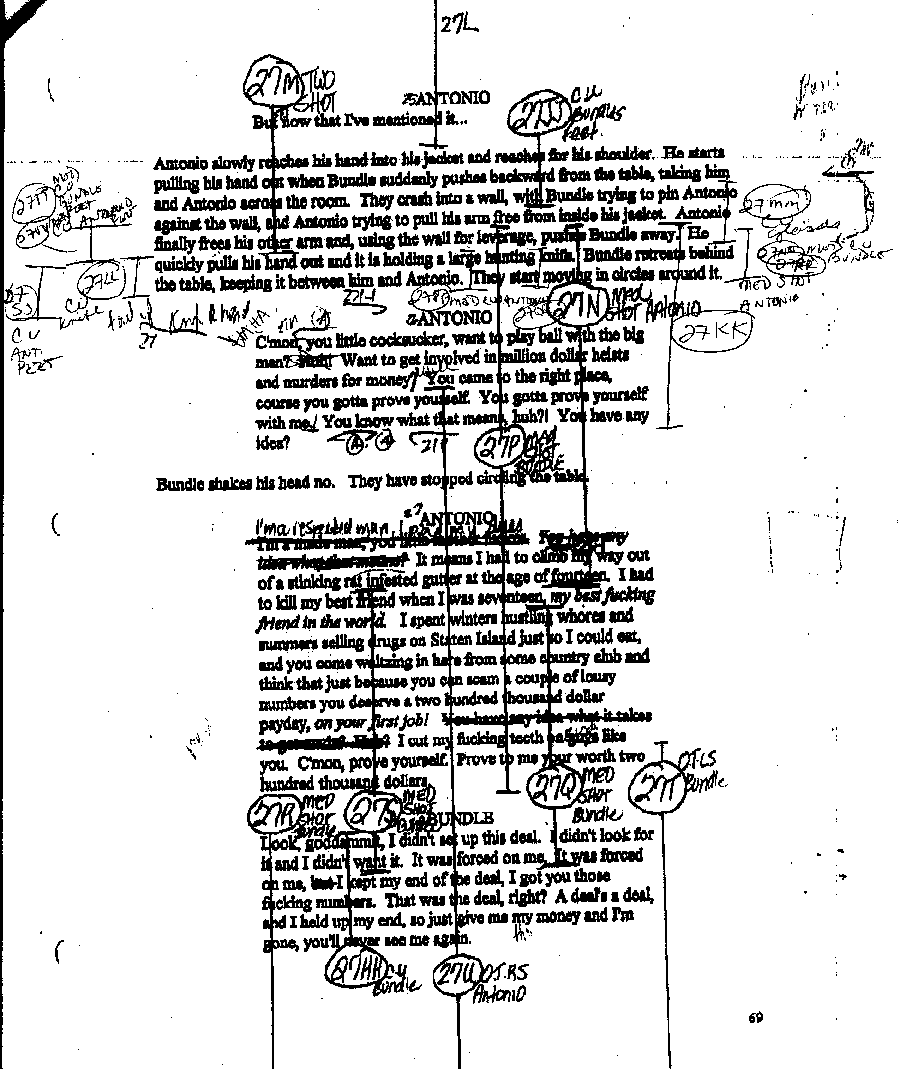 27L
27M TWO
SHOT
25 ANTONIO
But now that I've mentioned it...
27JJ CU
Bundles
feet.
Antonio slowly reaches his hand into his jacket and reaches for his shoulder. He starts
pulling his hand out when Bundle suddenly pushes backward from the table, taking him
and Antonio across the room. They crash into a wall, with Bundle trying to pin Antonio
against the wall, and Antonio trying to pull his arm free from inside his jacket. Antonio
finally frees his other arm and, using the wall for leverage, pushes Bundle away. He
quickly pulls his hand out and it is holding a large hunting knife. Bundle retreats behind
the table, keeping it between him and Antonio. They start moving in circles around it.
27mm
BUNDLE
MED SHOT
ANTONIO
27LL
CU
knife
CU
ANT.
FEET
27
27N MED
SHOT ANTONIO
27KK
ANTONIO
C'mon, you little cocksucker, want to play ball with the big
man? Huh! Want to get involved in million dollar heists
and murders for money? You came to the right place,
course you gotta prove yourself. You gotta prove yourself
with me! You know what that means, huh?! You have any
idea?
27P MED
SHOT
BUNDLE
Bundle shakes his head no. They have stopped circling the table.
27 ANTONIO
I'm a respected man
I'm a made man, you
idea what that means? It means I had to climb my way out
of a stinking rat infested gutter at the age of fourteen. I had
to kill my best friend when I was seventeen, my best fucking
friend in the world. I spent winters hustling whores and
summers selling drugs on Staten Island just so I could eat,
and you come waltzing in here from some country club and
think that just because you can scam a couple of lousy
numbers you deserve a two hundred thousand dollar
payday, on your first job! You have any idea what it takes
to get made? Huh? I cut my fucking teeth on guys like
you. C'mon, prove yourself. Prove to me your worth two
hundred thousand dollars.
27R MED
SHOT
Bundle
27S MED
SHOT
27Q MED
SHOT
Bundle
27T O.T.LS
Bundle
BUNDLE
Look, goddammit, I didn't set up this deal. I didn't look for
it and I didn't want it. It was forced on me. It was forced
on me, but I kept my end of the deal, I got you those
fucking numbers. That was the deal, right? A deal's a deal,
and I held up my end, so just give me my money and I'm
gone, you'll never see me again.
27HH CU
Bundle
27U O.T.RS
Antonio
69